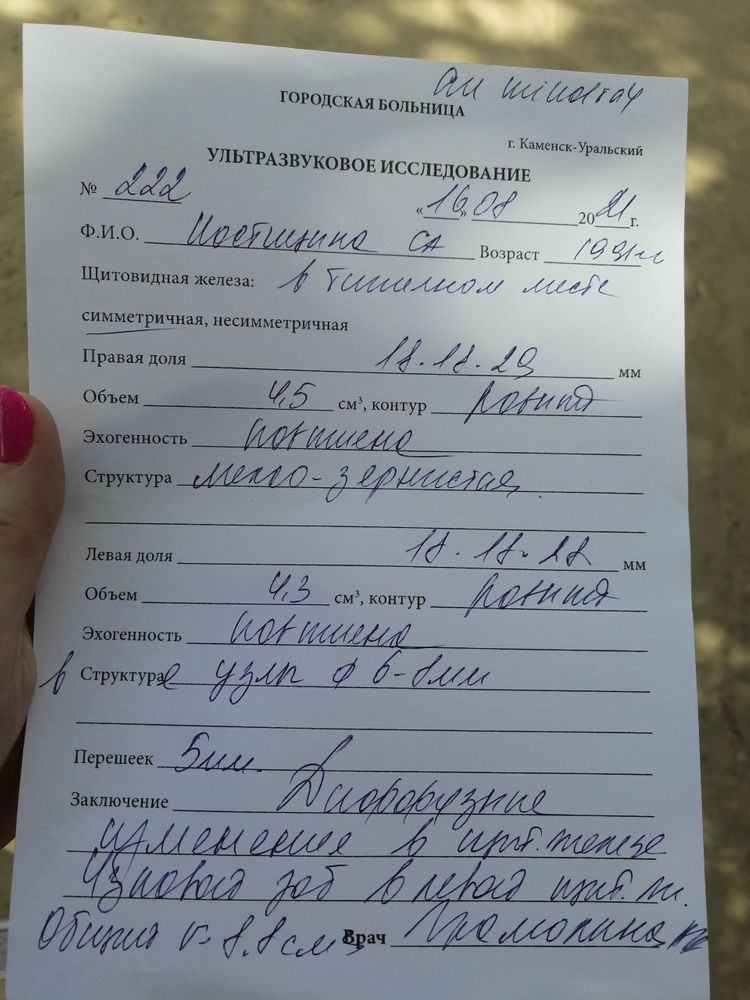 ГОРОДСКАЯ БОЛЬНИЦА
г. Каменск-Уральский
УЛЬТРАЗВУКОВОЕ ИССЛЕДОВАНИЕ
№ 222 «16» 08 2021 г.
Ф.И.О. СА Возраст 1991
Щитовидная железа: в типичном месте
симметричная, несимметричная
Правая доля 18.18.29 мм
Объем 4,5 см³, контур ровный
Эхогенность повышена
Структура мелко-зернистая
Левая доля 18.18.28 мм
Объем 4,3 см³, контур ровный
Эхогенность повышена
в Структуре узлы ф 6-8мм
Перешеек 5мм.
Заключение Диффузные
изменение в щит. железе
Узловой зоб в левой щит. ж.
Общий V- 8,8 см³ Врач